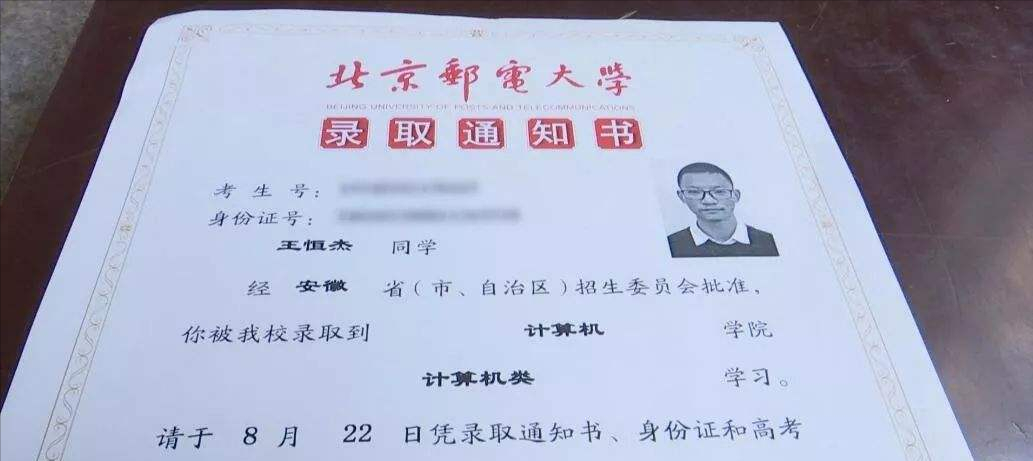 北京郵電大學
BEIJING UNIVERSITY OF POSTS AND TELECOMMUNICATIONS
录取通知书
考生号：
身份证号：
王恒杰 同学
经 安徽 省（市、自治区）招生委员会批准，
你被我校录取到 计算机 学院
计算机类 学习。
请于 8 月 22 日凭录取通知书、身份证和高考